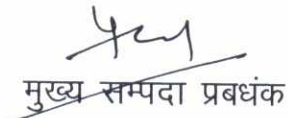 मुख्य सम्पदा प्रबधंक